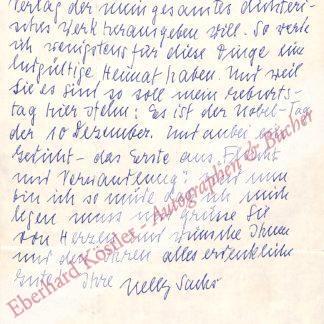 Verlag der mein gesamtes dichteri-
sches Werk herausgeben will. So werde
ich wenigstens für diese Dinge eine
endgültige Heimat haben. Und weil
Sie es sind so soll mein Geburts-
tag hier stehn: Es ist der Nobel-Tag
der 10 Dezember. Und anbei ein
Gedicht - das Erste aus Flucht
und Verwandlung: Und nun
bin ich so müde daß ich mich
legen muss und grüsse Sie
von Herzen und wünsche Ihnen
und den Ihren alles erdenklich
Gute Ihre Nelly Sachs
Eberhard Köstler - Autographen & Bücher